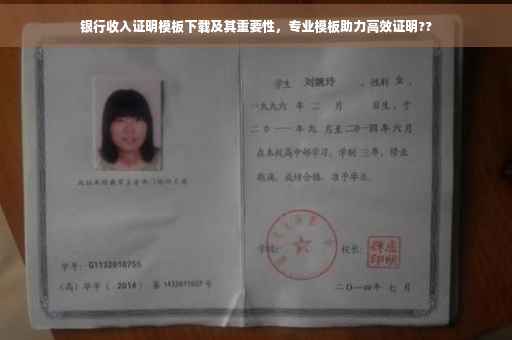 银行收入证明模板下载及其重要性，专业模板助力高效证明??
学生 刘婉玲 ，性别 女 ，
一九九六 年 二 月 日生，于
二〇一一 年 九 月至 二〇一四 年 六 月
在本校高中部学习，学制 三 年，修业
期满，成绩合格，准予毕业。
学号： G1132010755
(高) 毕字 ( 2014 ) 第 1432011027 号
学校：
校长：
二〇一四年 七 月